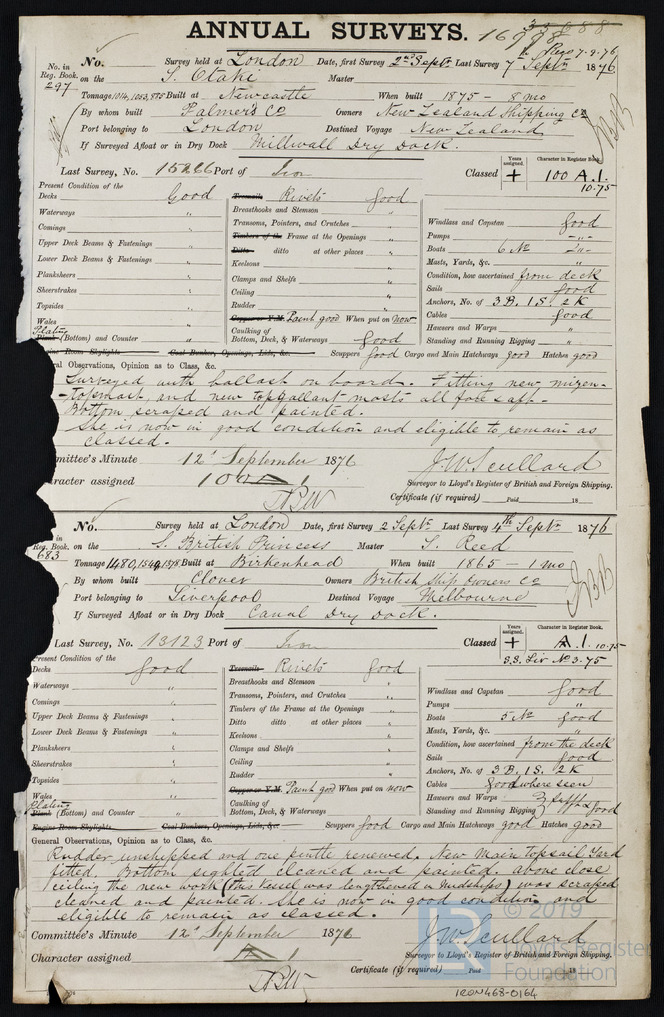 ANNUAL SURVEYS. 16998
Reg 7.9.76
No. in Reg. Book. No. Survey held at London Date, first Survey 2nd Septr Last Survey 7th Septr 1876
297 on the S. Otaki Master
Tonnage 1014, 1053, 875 Built at Newcastle When built 1875 – 8 mo
By whom built Palmer's Co Owners New Zealand Shipping Co
Port belonging to London Destined Voyage New Zealand
If Surveyed Afloat or in Dry Dock Millwall Dry Dock.
Last Survey, No. 15266 Port of Iron Classed Years assigned. + Character in Register Book. 100 A.1. 10.75
Present Condition of the
Decks Good
Waterways "
Comings "
Upper Deck Beams & Fastenings "
Lower Deck Beams & Fastenings "
Planksheers "
Sheerstrakes "
Topsides "
Wales "
Plating
Plank (Bottom) and Counter "
Treenails Rivets good
Breasthooks and Stemson "
Transoms, Pointers, and Crutches "
Timbers of the Frame at the Openings "
Ditto ditto at other places "
Keelsons "
Clamps and Shelfs "
Ceiling "
Rudder "
Copper or Y.M. Paint good When put on now
Caulking of
Bottom, Deck, & Waterways good
Windlass and Capstan good
Pumps "
Boats 6 No "
Masts, Yards, &c. "
Condition, how ascertained from deck
Sails good
Anchors, No. of 3 B. 1 S. 2 K
Cables good
Hawsers and Warps "
Standing and Running Rigging "
Engine Room Skylights Coal Bunkers, Openings, Lids, &c. Scuppers good Cargo and Main Hatchways good Hatches good
al Observations, Opinion as to Class, &c.
Surveyed with ballast on board. Fitting new mizen-
-topmast, and new topgallant masts all fore & aft.
Bottom scraped and painted.
She is now in good condition and eligible to remain as
classed.
mmittee's Minute 12th September 1876 J.W. Scullard
aracter assigned 100 A 1 Surveyor to Lloyd's Register of British and Foreign Shipping.
Certificate (if required) Paid 18
No. Survey held at London Date, first Survey 2 Septr Last Survey 4th Septr 1876
in Reg. Book. 683 on the S. British Princess Master S. Reed
Tonnage 1480, 1544, 1378 Built at Birkenhead When built 1865 – 1 mo
By whom built Clover Owners British Ship owners Co
Port belonging to Liverpool Destined Voyage Melbourne
If Surveyed Afloat or in Dry Dock Canal Dry Dock.
Last Survey, No. 13123 Port of Iron Classed Years assigned. + Character in Register Book. A.1. 10.75
S.S. Liv No 3.75
Present Condition of the
Decks good
Waterways "
Comings "
Upper Deck Beams & Fastenings "
Lower Deck Beams & Fastenings "
Planksheers "
Sheerstrakes "
Topsides "
Wales "
Plating
Plank (Bottom) and Counter "
Treenails Rivets good
Breasthooks and Stemson "
Transoms, Pointers, and Crutches "
Timbers of the Frame at the Openings "
Ditto ditto at other places "
Keelsons "
Clamps and Shelfs "
Ceiling "
Rudder "
Copper or Y.M. Paint good When put on now
Caulking of
Bottom, Deck, & Waterways "
Windlass and Capstan good
Pumps "
Boats 5 No good
Masts, Yards, &c. "
Condition, how ascertained from the deck
Sails good
Anchors, No. of 3 B. 1 S. 2 K
Cables good where seen
Hawsers and Warps
Standing and Running Rigging } sufft & good
Engine Room Skylights Coal Bunkers, Openings, Lids, &c. Scuppers good Cargo and Main Hatchways good Hatches good
General Observations, Opinion as to Class, &c.
Rudder unshipped and one pintle renewed. New Main topsail Yard
fitted. Bottom sighted cleaned and painted. above close
ceiling the new work (this Vessel was lengthened in Midships) was scraped
cleaned and painted. She is now in good condition and
eligible to remain as classed.
Committee's Minute 12th September 1876 J.W. Scullard
Character assigned A 1 Surveyor to Lloyd's Register of British and Foreign Shipping.
Certificate (if required) Paid 18
© 2019
Lloyd's Register
Foundation
IRON468-0164